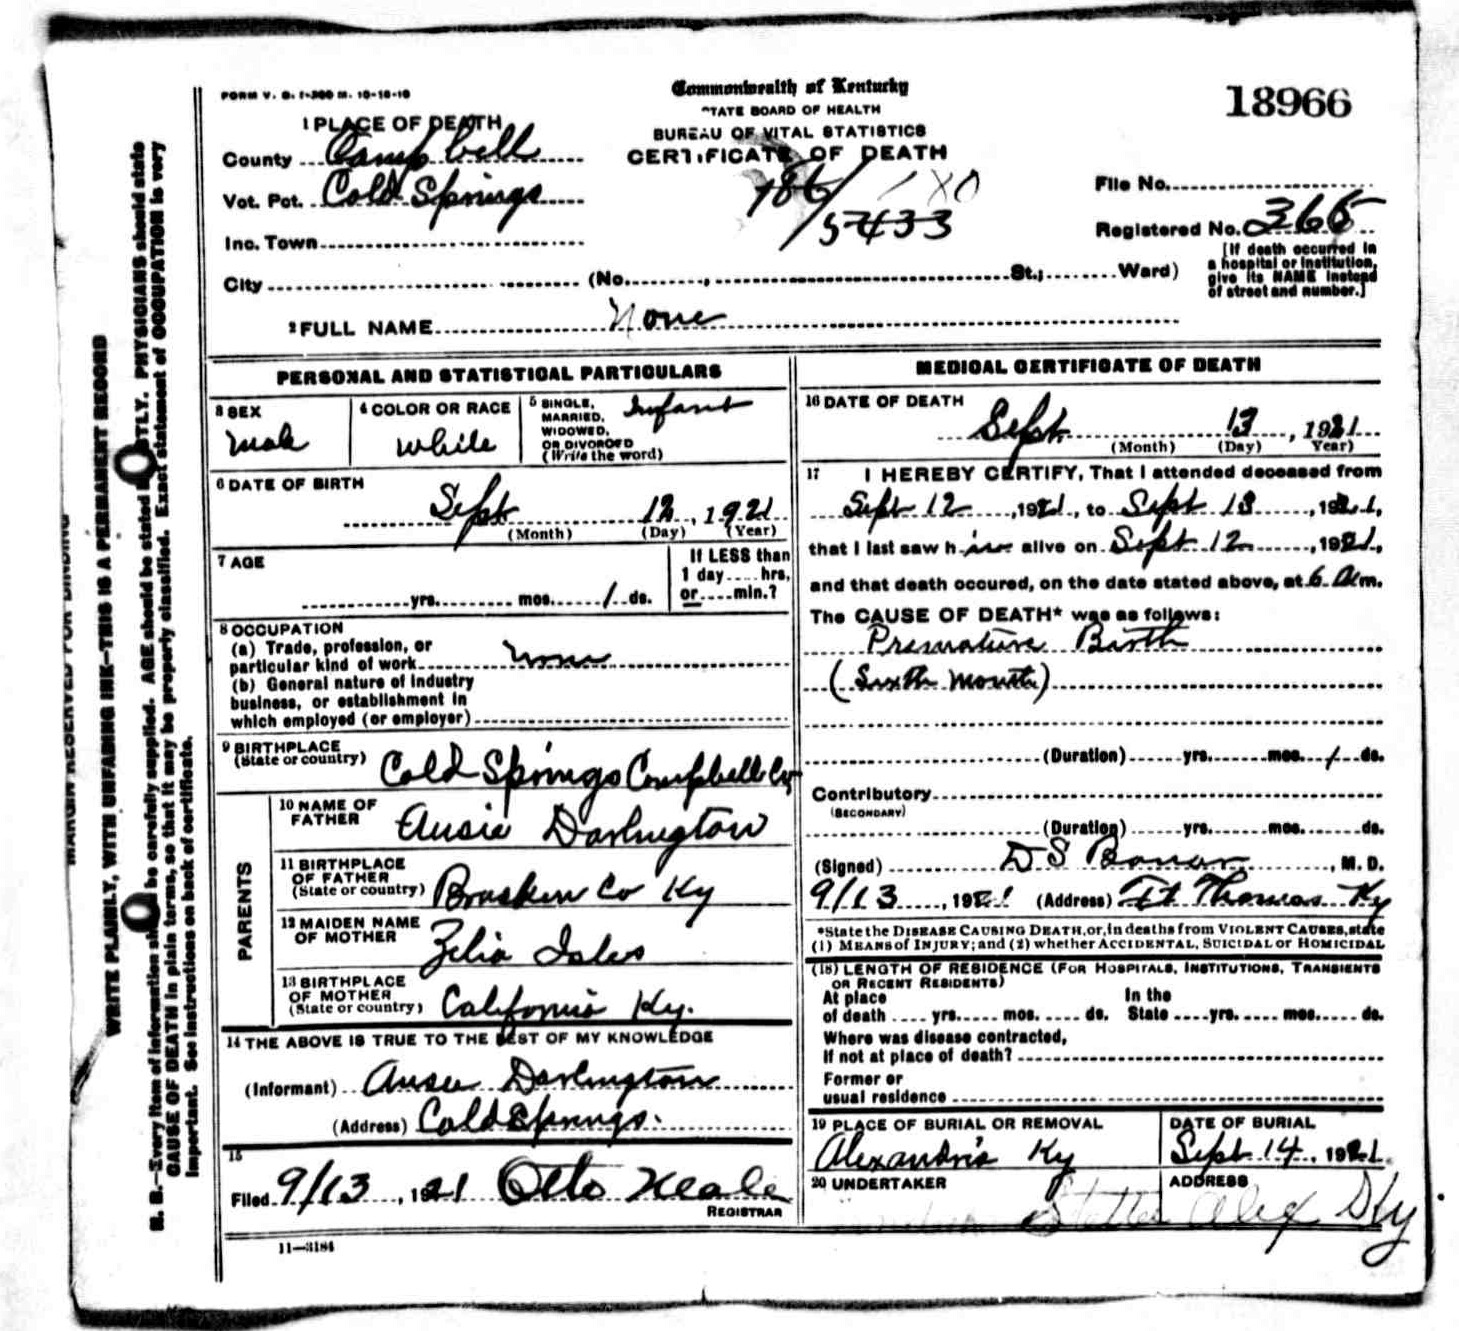 FORM V. S. 1-300 M. 10-10-19
Commonwealth of Kentucky
STATE BOARD OF HEALTH
BUREAU OF VITAL STATISTICS
CERTIFICATE OF DEATH
18966
1 PLACE OF DEATH
County Campbell
Vot. Pct. Cold Springs
Inc. Town
City (No. , St.; Ward)
5433
File No.
Registered No. 365
[If death occurred in
a hospital or institution,
give its NAME instead
of street and number.]
2 FULL NAME None
PERSONAL AND STATISTICAL PARTICULARS
3 SEX
male
4 COLOR OR RACE
white
5 SINGLE, Infant
MARRIED,
WIDOWED,
OR DIVORCED
(Write the word)
6 DATE OF BIRTH
Sept 12, 1921
(Month) (Day) (Year)
7 AGE
yrs. mos. 1 ds.
If LESS than
1 day .... hrs,
or .... min.?
8 OCCUPATION
(a) Trade, profession, or
particular kind of work none
(b) General nature of industry
business, or establishment in
which employed (or employer)
9 BIRTHPLACE
(State or country) Cold Springs Campbell Co
PARENTS
10 NAME OF
FATHER Ausie Darlington
11 BIRTHPLACE
OF FATHER
(State or country) Bracken Co Ky
12 MAIDEN NAME
OF MOTHER Zelia Isles
13 BIRTHPLACE
OF MOTHER
(State or country) California Ky.
14 THE ABOVE IS TRUE TO THE BEST OF MY KNOWLEDGE
(Informant) Ausie Darlington
(Address) Cold Springs.
15
Filed 9/13, 1921 Otto Neale
REGISTRAR
11—3184
MEDICAL CERTIFICATE OF DEATH
16 DATE OF DEATH
Sept. 13, 1921
(Month) (Day) (Year)
17 I HEREBY CERTIFY, That I attended deceased from
Sept 12, 1921, to Sept 13, 1921,
that I last saw him alive on Sept 12, 1921,
and that death occured, on the date stated above, at 6 am.
The CAUSE OF DEATH* was as follows:
Premature Birth
(Sixth Month)
(Duration) yrs. mos. 1 ds.
Contributory
(SECONDARY)
(Duration) yrs. mos. ds.
(Signed) D S Bonar, M. D.
9/13, 1921 (Address) Ft Thomas Ky
*State the DISEASE CAUSING DEATH, or, in deaths from VIOLENT CAUSES, state
(1) MEANS of INJURY; and (2) whether ACCIDENTAL, SUICIDAL or HOMICIDAL
(18) LENGTH OF RESIDENCE (FOR HOSPITALS, INSTITUTIONS, TRANSIENTS
OR RECENT RESIDENTS)
At place In the
of death .... yrs. .... mos. .... ds. State .... yrs. .... mos. .... ds.
Where was disease contracted,
If not at place of death?
Former or
usual residence
19 PLACE OF BURIAL OR REMOVAL
Alexandria Ky
DATE OF BURIAL
Sept 14, 1921.
20 UNDERTAKER
ADDRESS
Alex Ky
MARGIN RESERVED FOR BINDING
WRITE PLAINLY, WITH UNFADING INK—THIS IS A PERMANENT RECORD
N. B.—Every item of information should be carefully supplied. AGE should be stated EXACTLY. PHYSICIANS should state
CAUSE OF DEATH in plain terms, so that it may be properly classified. Exact statement of OCCUPATION is very
important. See instructions on back of certificate.